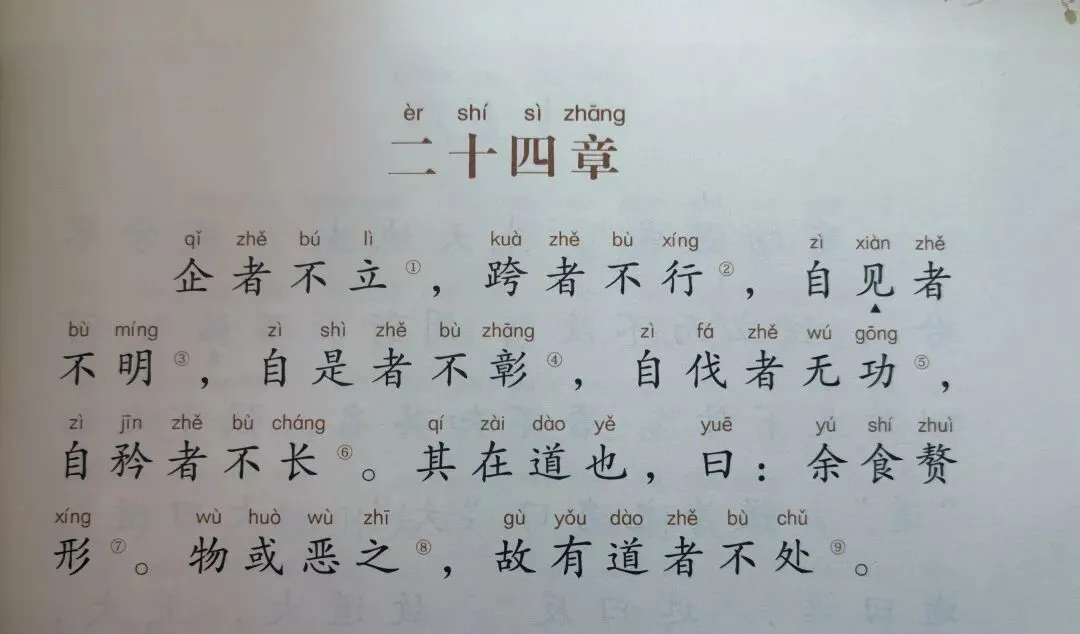 èr shí sì zhāng
二十四章
qǐ zhě bú lì kuà zhě bù xíng zì xiàn zhě
企者不立①，跨者不行②，自见者
bù míng zì shì zhě bù zhāng zì fá zhě wú gōng
不明③，自是者不彰④，自伐者无功⑤，
zì jīn zhě bù cháng qí zài dào yě yuē yú shí zhuì
自矜者不长⑥。其在道也，曰：余食赘
xíng wù huò wù zhī gù yǒu dào zhě bù chǔ
形⑦。物或恶之⑧，故有道者不处⑨。